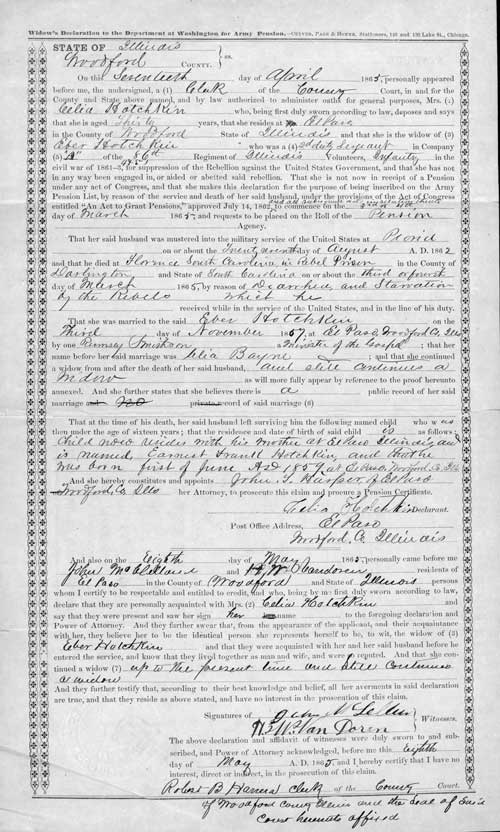 Widow's Declaration to the Department at Washington for Army Pension.—CULVER, PAGE & HOYNE, Stationers, 128 and 130 Lake St., Chicago.
STATE OF Illinois
Woodford COUNTY. } ss.
On this Seventeeth day of April 1865, personally appeared
before me, the undersigned, a (1) Clerk of the County Court, in and for the
County and State above named, and by law authorized to administer oaths for general purposes, Mrs. (2)
Celia Hotchkin who, being first duly sworn according to law, deposes and says
that she is aged Thirty years, that she resides at El Paso
in the County of Woodford State of Illinois and that she is the widow of (3)
Eber Hotchkin who was a (4) Sergeant in Company
(5) "A" of the 86th Regiment of Illinois Volunteers, Infantry, in the
civil war of 1861–5, for suppression of the Rebellion against the United States Government, and that she has not
in any way been engaged in, or aided or abetted said rebellion. That she is not now in receipt of a Pension
under any act of Congress, and that she makes this declaration for the purpose of being inscribed on the Army
Pension List, by reason of the service and death of her said husband, under the provisions of the Act of Congress
entitled "An Act to Grant Pensions," approved July 14, 1862, to commence on the
day of March 1865; and requests to be placed on the Roll of the Pension
Agency.
That her said husband was mustered into the military service of the United States at Peoria
on or about the Twenty seventh day of August A. D. 1862
and that he died at Florence South Carolina in Rebel Prison in the County of
Darlington and State of South Carolina on or about the third or fourth
day of March 1865, by reason of Diarrhea and Starvation
by the Rebels which he
received while in the service of the United States, and in the line of his duty.
That she was married to the said Eber Hotchkin on the
Third day of November 1857, at El Paso, Woodford Co Ills
by one Ramsey Smithson a Minister of the Gospel; that her
name before her said marriage was Celia Bayne; and that she continued
a widow from and after the death of her said husband, and still continues a
widow as will more fully appear by reference to the proof hereunto
annexed. And she further states that she believes there is a public record of her said
marriage no private record of said marriage (6)
That at the time of his death, her said husband left surviving him the following named child who was
then under the age of sixteen years; that the residence and date of birth of said child is as follows:
Child now resides with his mother at El Paso Illinois, and
is named, Earnest Frank Hotchkin, and that he
was born first of June AD 1859 at El Paso, Woodford Co, Ills
And she hereby constitutes and appoints John S. Harper, of El Paso
Woodford, Co Ills her Attorney, to prosecute this claim and procure a Pension Certificate.
Celia Hotchkin Declarant.
Post Office Address, El Paso
Woodford, Co Illinois
And also on the Eighth day of May 1865, personally came before me
John McClelland and H W Vandoren residents of
El Paso in the County of Woodford and State of Illinois persons
whom I certify to be respectable and entitled to credit, and who, being by me first duly sworn according to law,
declare that they are personally acquainted with Mrs. (2) Celia Hotchkin and
say that they were present and saw her sign her name to the foregoing declaration and
Power of Attorney. And they further swear that, from the appearance of the applicant, and their acquaintance
with her, they believe her to be the identical person she represents herself to be, to wit, the widow of (3)
Eber Hotchkin and that they were acquainted with her and her said husband before he
entered the service, and know that they lived together as man and wife, and were so reputed. And that she con-
tinued a widow (7) up to the present time and still continues
a widow
And they further testify that, according to their best knowledge and belief, all her averments in said declaration
are true, and that they reside as above stated, and have no interest in the prosecution of this claim.
Signatures of
H. W. Van Doren } Witnesses.
The above declaration and affidavit of witnesses were duly sworn to and sub-
scribed, and Power of Attorney acknowledged, before me this eighth
day of May A. D. 1865 and I hereby certify that I have no
interest, direct or indirect, in the prosecution of this claim.
Robert B Hanna Clerk of the County Court.
of Woodford County Illinois and the Seal of said
Court hereunto affixed